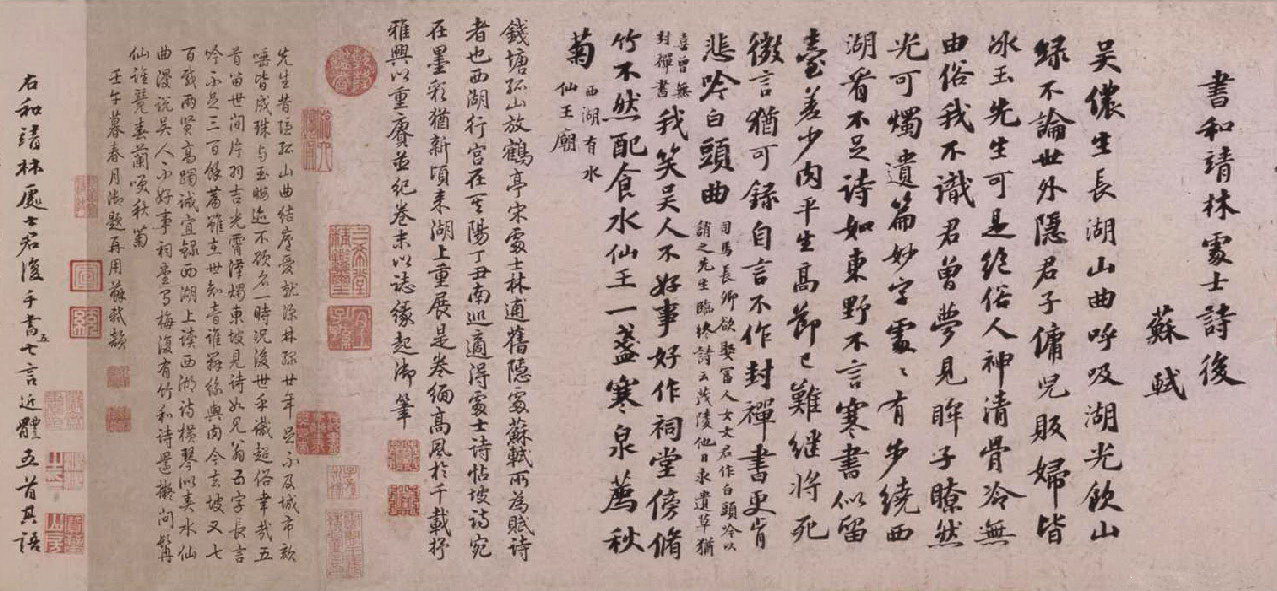 書和靖林處士詩後
蘇軾
吳儂生長湖山曲呼吸湖光飲山
綠不論世外隱君子傭兒販婦皆
冰玉先生可是絕俗人神清骨冷無
由俗我不識君曾夢見眸子瞭然
光可燭遺篇妙字處〻有步繞西
湖看不足詩如東野不言寒書似留
臺差少肉平生高節已難繼將死
微言猶可錄自言不作封禪書更肯
悲吟白頭曲司馬長卿欲娶富人女文君作白頭吟以
誚之先生臨終詩云茂陵他日求遺草猶
喜曾無
封禪書我笑吳人不好事好作祠堂傍脩
竹不然配食水仙王一盞寒泉薦秋
菊西湖有水
仙王廟
錢塘孤山放鶴亭宋處士林逋舊隱處蘇軾所為賦詩
者也西湖行宮在至陽丁丑南巡適得處士詩帖坡詩宛
在墨彩猶新頃來湖上重展是卷緬高風於千載抒
雅興以重賡並紀卷末以誌緣起御筆
先生昔隱孤山曲結廬愛就湖林綠廿年足不及城市欬
唾皆成珠與玉
昔留世間片羽吉光霏澤燭東坡見詩如見
百歲兩賢高躅誠宜錄西湖上讀西湖詩橫琴似奏水仙
曲漫說吳人不好事祠堂
壬午暮春月御題再用蘇軾韻
右和靖林處士君復手書七言近體五首其語